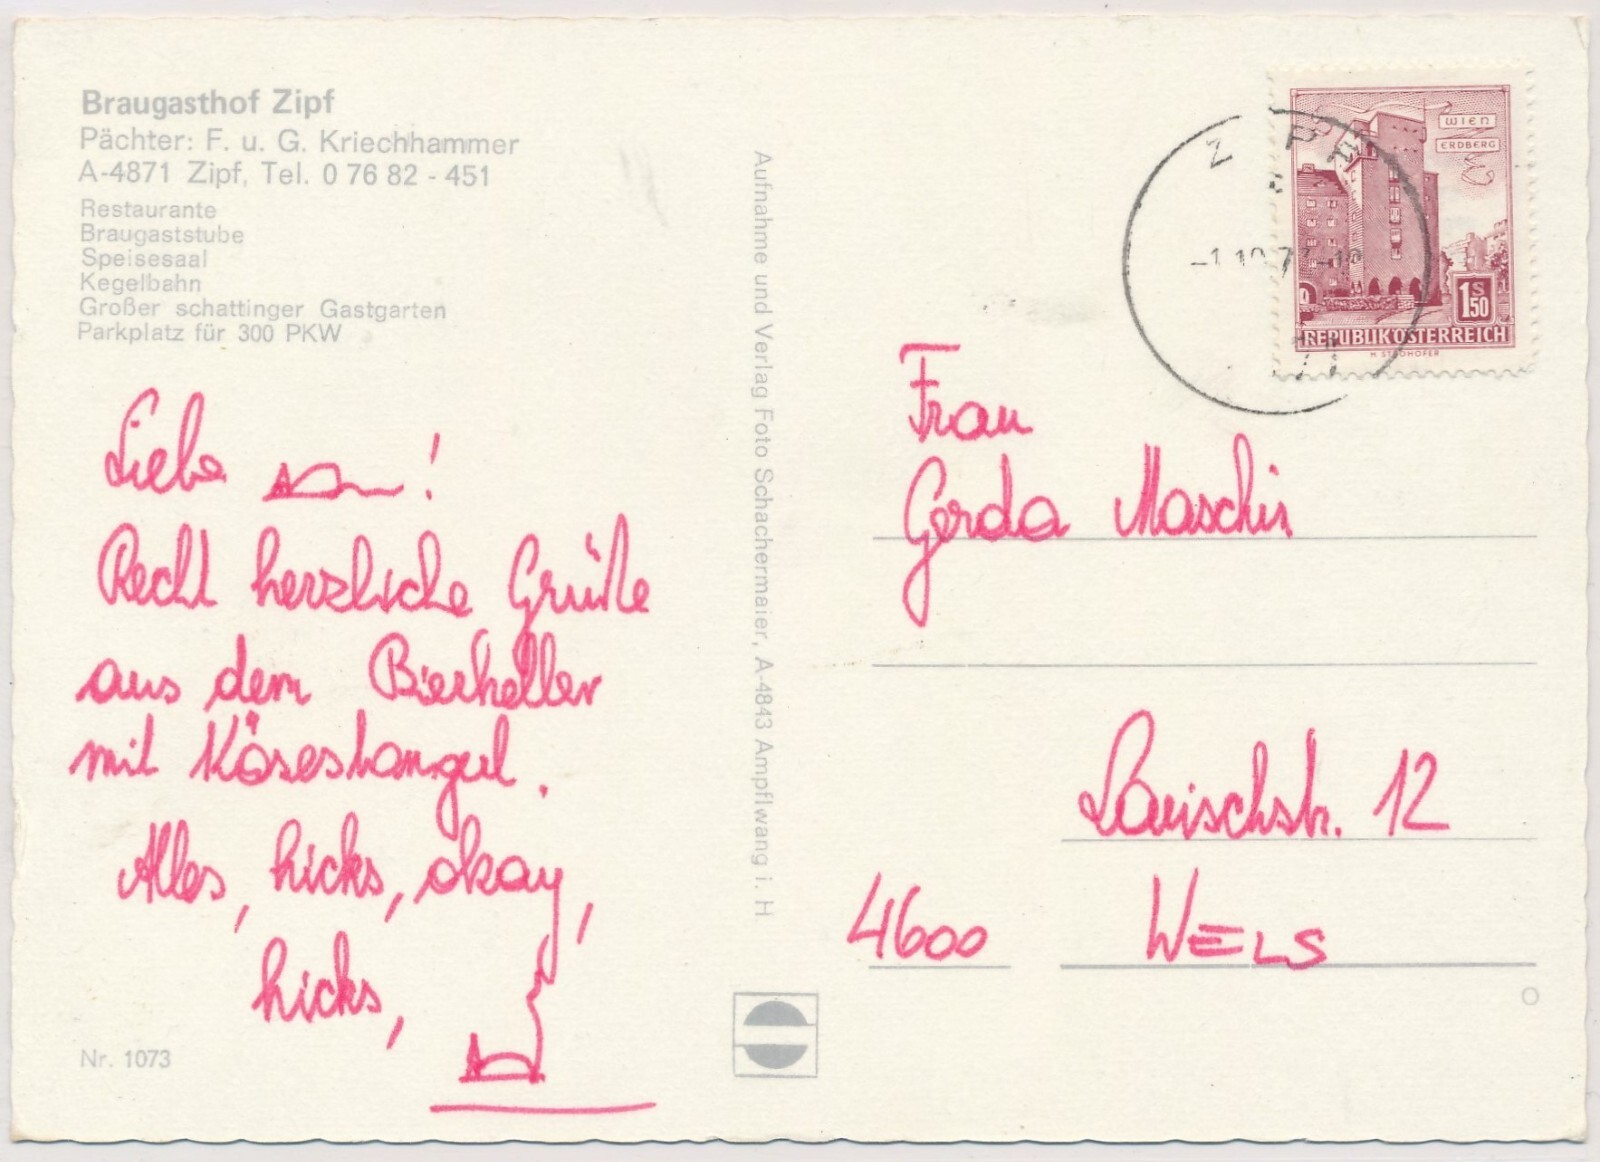 Braugasthof Zipf
Pächter: F. u. G. Kriechhammer
A-4871 Zipf, Tel. 0 76 82 - 451
Restaurante
Braugaststube
Speisesaal
Kegelbahn
Großer schattinger Gastgarten
Parkplatz für 300 PKW
Liebe !
Recht herzliche Grüße
aus dem Bierkeller
mit Käsestangerl.
Alles, hicks, okay,
hicks,
Nr. 1073
Aufnahme und Verlag Foto Schachermaier, A-4843 Ampflwang i. H
WIEN
ERDBERG
1 S 50
REPUBLIK ÖSTERREICH
H. STROHOFER
ZIPF
Frau
Gerda
12
4600 WELS